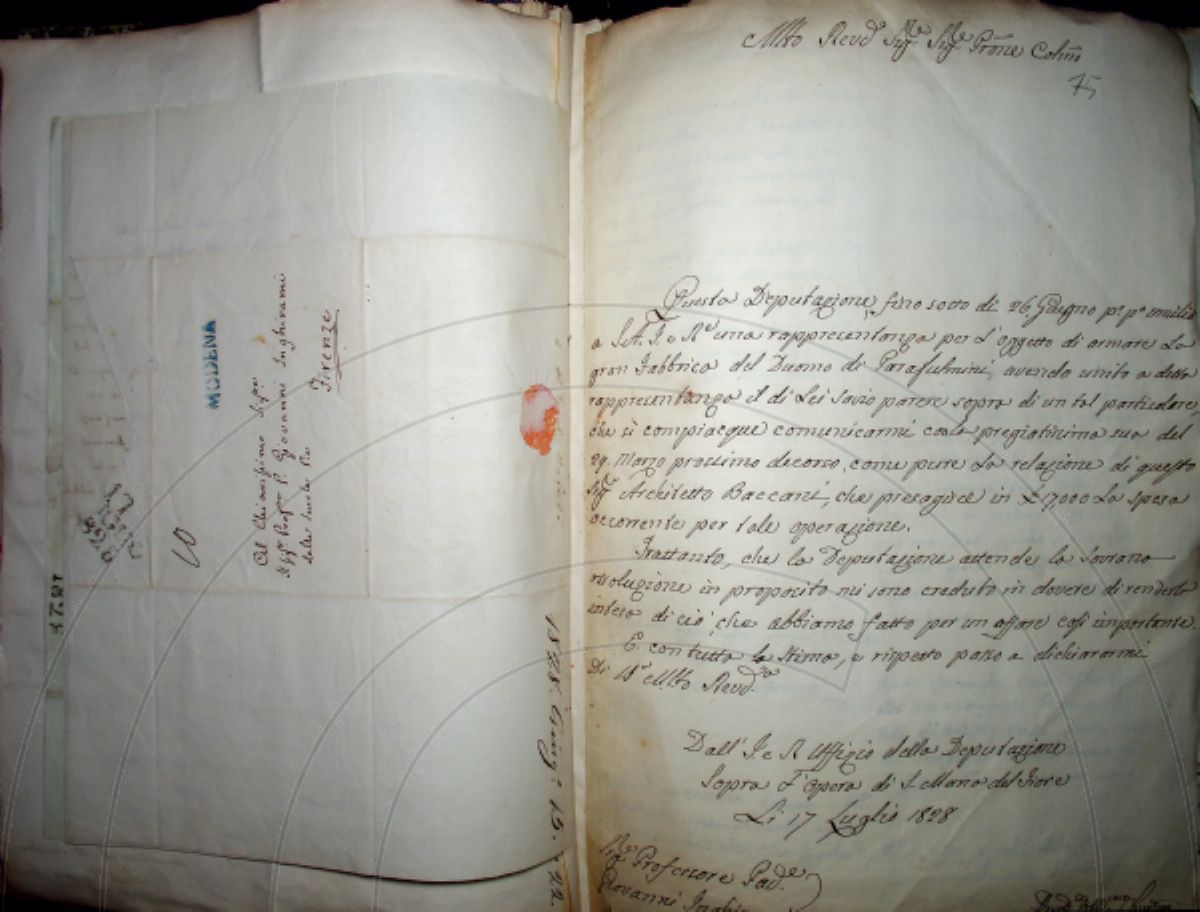 MODENA
10
Al Chiarissimo Sigr.
Il Sigr. Profr. P. Giovanni Inghirami
delle Scuole Pie
Firenze
1828. Giug.° 15. 22.
Mto Revd. Sigre Sigre Prōne Colmo
75
Questa Deputazione fino sotto di 26 Giugno p.° p.° umiliò
a S.A.I. e R.e una rappresentanza per l'oggetto di armare la
gran Fabbrica del Duomo di Parafulmini, avendo unito a detta
rappresentanza il di Lei savio parere sopra di un tal particolare,
che si compiacque comunicarmi colla pregiatissima sua del
29. Marzo prossimo decorso, come pure la relazione di questo
Sigre Architetto Baccani, che presagisce in £ 17,000 la spesa
occorrente per tale operazione.
Frattanto, che la Deputazione attende la Sovrana
risoluzione in proposito mi sono creduto in dovere di renderla
intesa di ciò, che abbiamo fatto per un affare così importante.
E con tutta la stima, e rispetto passo a dichiararmi
Di V.S. Mto Revda.
Dall' I. e R. Uffizio della Deputazione
Sopra l'Opera di S. Maria del Fiore
Li 17 Luglio 1828
Sigre Professore Pade.
Giovanni Inghi